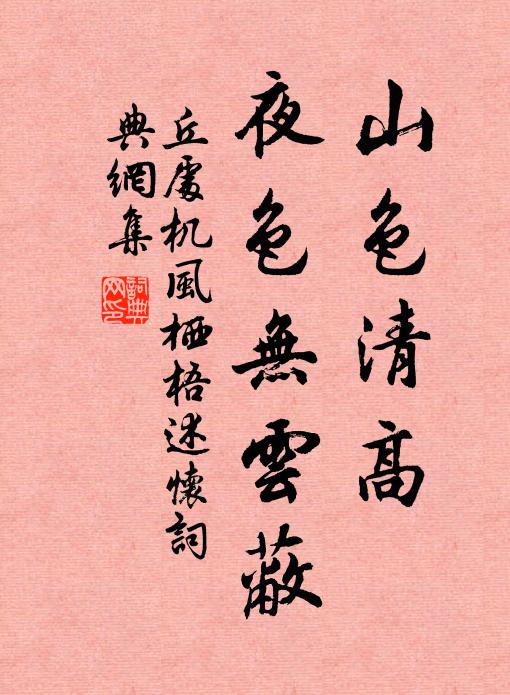 山色清高
夜色無雲蔽
丘處机風栖梧述懷詞
典網集
詞典
网印